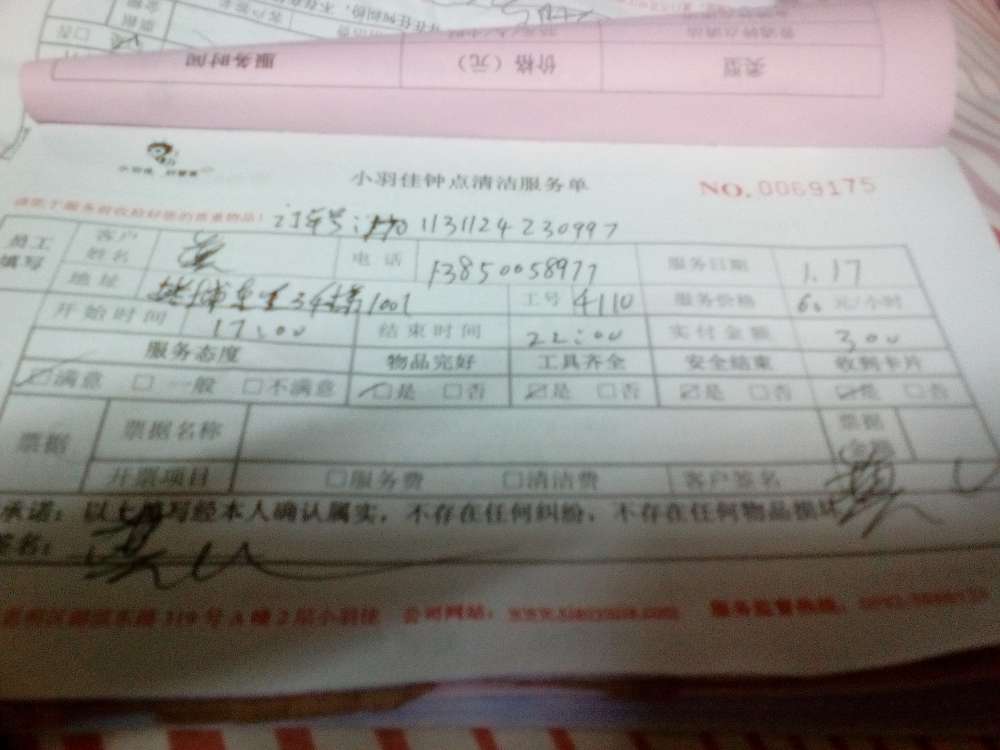 服务时间 价格（元） 类型
小羽佳 好管家
小羽佳钟点清洁服务单 NO.0069175
1131124230997
员工填写 客户姓名 电话 13850058977 服务日期 1.17
地址 1001 工号 4110 服务价格 60 元/小时
开始时间 17:00 结束时间 22:00 实付金额 300
服务态度 物品完好 工具齐全 安全结束 收到卡片
☑满意 □一般 □不满意 ☑是 □否 ☑是 □否 ☑是 □否 ☑是 □否
票据 票据名称 票据金额
开票项目 □服务费 □清洁费 客户签名
承诺：以上填写经本人确认属实，不存在任何纠纷，不存在任何物品损坏
签名：
319号A楼2层小羽佳 公司网站： 服务监督热线：